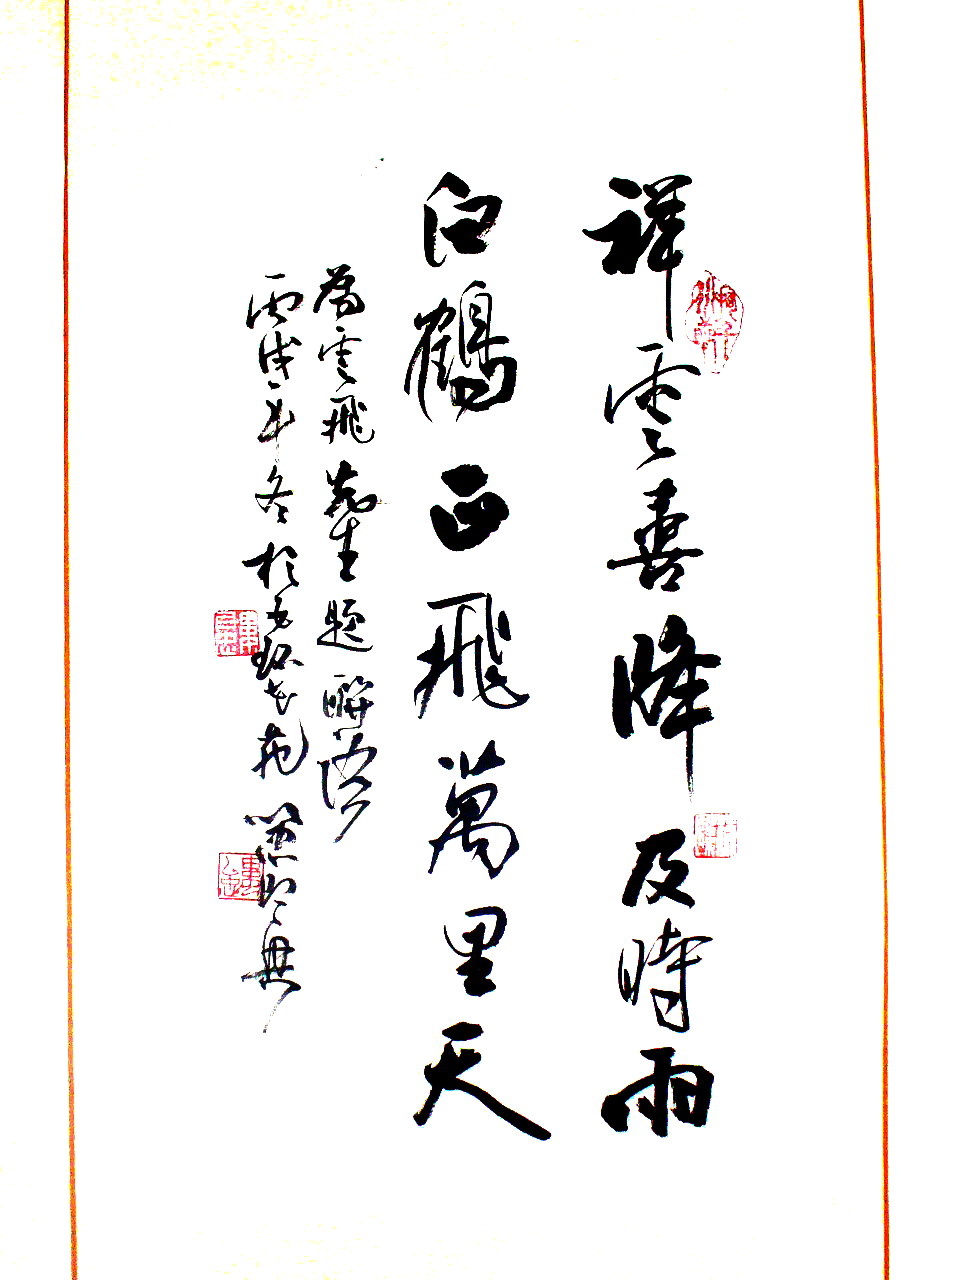 祥雲喜降及時雨
白鶴正飛萬里天
為雲飛先生題聯語
丙戌年冬於